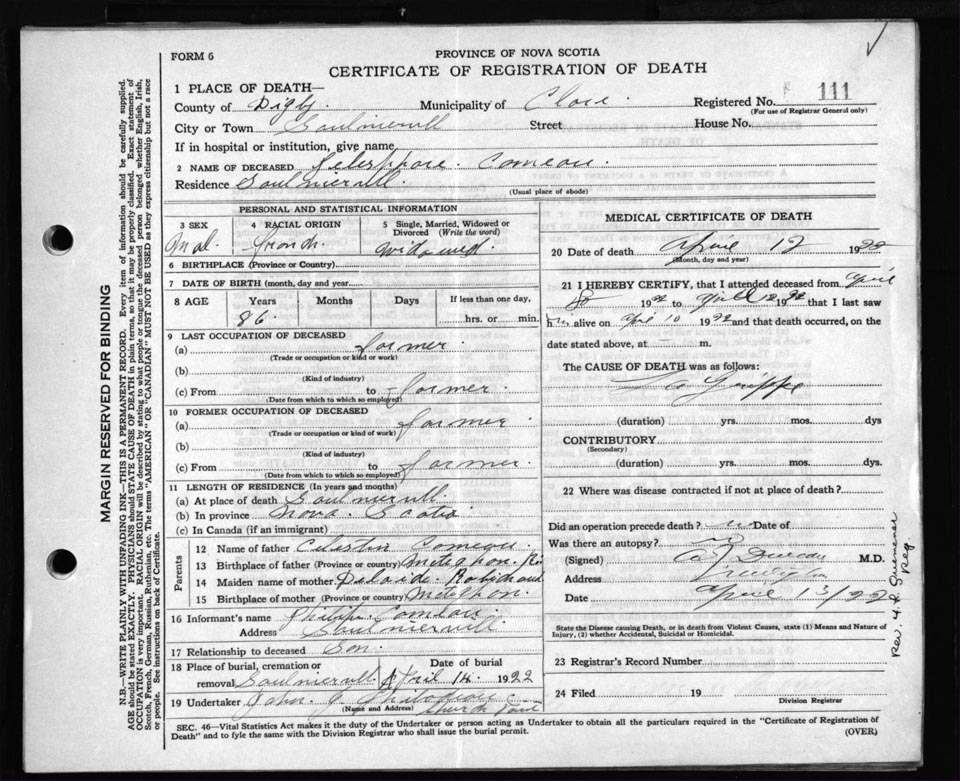 FORM 6
PROVINCE OF NOVA SCOTIA
CERTIFICATE OF REGISTRATION OF DEATH
1 PLACE OF DEATH—
County of Digby. Municipality of Clare. Registered No. 111
(For use of Registrar General only)
City or Town Saulnierull Street House No.
If in hospital or institution, give name
2 NAME OF DECEASED Telesphore. Comeau.
Residence Saulnierull.
(Usual place of abode)
PERSONAL AND STATISTICAL INFORMATION
3 SEX 4 RACIAL ORIGIN 5 Single, Married, Widowed or Divorced (Write the word)
Mal. French. Widowed.
6 BIRTHPLACE (Province or Country)
7 DATE OF BIRTH (month, day and year)
8 AGE Years Months Days If less than one day,
86. hrs. or min.
9 LAST OCCUPATION OF DECEASED
(a) farmer.
(Trade or occupation or kind or work)
(b)
(Kind of industry)
(c) From to farmer.
(Date from which to which so employed)
10 FORMER OCCUPATION OF DECEASED
(a) farmer
(Trade or occupation or kind of work)
(b)
(Kind of industry)
(c) From to farmer.
(Date from which to which so employed)
11 LENGTH OF RESIDENCE (In years and months)
(a) At place of death Saulnierull.
(b) In province Nova. Scotia
(c) In Canada (if an immigrant)
Parents
12 Name of father Celestin Comeau.
13 Birthplace of father (Province or country) Meteghan. Ri
14 Maiden name of mother Delaide. Robichaud
15 Birthplace of mother (Province or country) Meteghan.
16 Informant's name Philip. Comeau.
Address Saulnierull
17 Relationship to deceased Son.
18 Place of burial, cremation or removal Saulnierull. Date of burial April 14. 1922
19 Undertaker John.
(Name and Address) Church Point
MEDICAL CERTIFICATE OF DEATH
20 Date of death April 12 1922
(Month, day and year)
21 I HEREBY CERTIFY, that I attended deceased from April
8 1922 to April 12 1922 that I last saw
h alive on Apr 10 1922 and that death occurred, on the
date stated above, at m.
The CAUSE OF DEATH was as follows:
La Grippe
(duration) yrs. mos. dys
CONTRIBUTORY
(Secondary)
(duration) yrs. mos. dys.
22 Where was disease contracted if not at place of death?
Did an operation precede death? no Date of
Was there an autopsy? no
(Signed) M.D.
Address Meteghan
Date April 13/22
State the Disease causing Death, or in death from Violent Causes, state (1) Means and Nature of
Injury, (2) whether Accidental, Suicidal or Homicidal.
23 Registrar's Record Number
24 Filed 19
Division Registrar
SEC. 46—Vital Statistics Act makes it the duty of the Undertaker or person acting as Undertaker to obtain all the particulars required in the "Certificate of Registration of
Death" and to fyle the same with the Division Registrar who shall issue the burial permit.
(OVER)
MARGIN RESERVED FOR BINDING
N.B.—WRITE PLAINLY WITH UNFADING INK—THIS IS A PERMANENT RECORD. Every item of information should be carefully supplied.
AGE should be stated EXACTLY. PHYSICIANS should STATE CAUSE OF DEATH in plain terms, so that it may be properly classified. Exact statement of
OCCUPATION is very important. RACIAL ORIGIN will be described by stating to what people or tongue the deceased person belonged whether English, Irish,
Scotch, French, German, Russian, Ruthenian, etc. The terms "AMERICAN" OR "CANADIAN" MUST NOT BE USED as they express citizenship but not a race
or people. See instructions on back of Certificate.
Rev. H. D.
Reg.